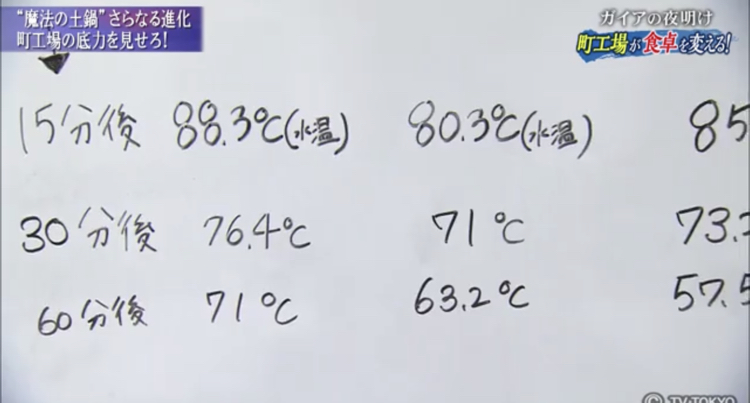 “魔法の土鍋”さらなる進化
町工場の底力を見せろ！
ガイアの夜明け
町工場が食卓を変える！
15分後 88.3℃(水温) 80.3℃(水温) 85
30分後 76.4℃ 71℃ 73.
60分後 71℃ 63.2℃ 57.5
©TV TOKYO